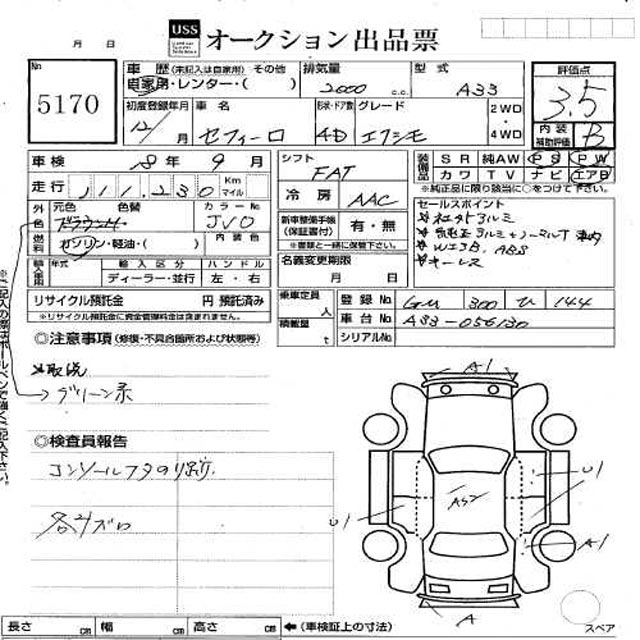 USS オークション出品票
月 日
No 5170
車歴 (未記入は自家用) その他 排気量 型式 評価点
自家用・レンター・( ) 2000 c.c. A33 3.5
初度登録年月 車名 形状・ドア数 グレード 2WD・4WD 内装補助評価 B
12/ 月 セフィーロ 4D エクシモ
車検 18年 9月
シフト FAT
装備品 SR 純AW PS PW
カワ TV ナビ エアB
※純正品に限り該当に○をつけて下さい。
走行 111,230 Km マイル
冷房 AAC
セールスポイント
外色 元色 色替 カラーNo JV0
社外アルミ
新車整備手帳(保証書付) 有・無
※書類と一緒に保管下さい。
燃料 ガソリン・軽油・( ) 内装色
WエBA, ABS
キーレス
輸入車用 年式 輸入区分 ハンドル
ディーラー・並行 左・右
名義変更期限
月 日
リサイクル預託金 円 預託済み
※リサイクル預託金に資金管理料金は含まれません。
乗車定員 人
積載量 t
登録No 300 ひ 144
車台No A33-056130
シリアルNo
◎注意事項 (修復・不具合箇所および状態等)
取説
グリーン系
◎検査員報告
コンソールフタのり跡
各キズ小
A1
U1
U1
A1
A
長さ cm 幅 cm 高さ cm ←(車検証上の寸法)
スペア
※ご記入の際はボールペンで強くご記入下さい。